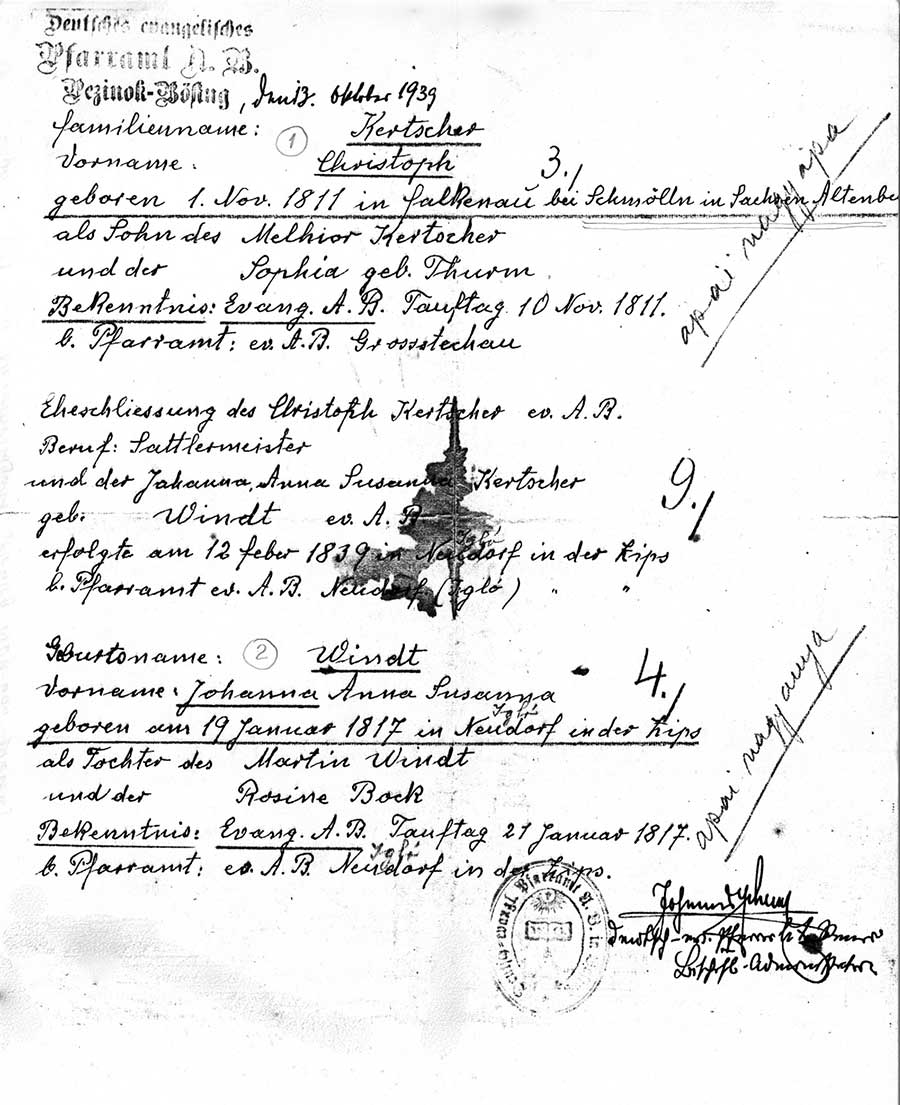 Deutsches evangelisches
Pfarramt A. B.
Pezinok-Bösing, den 13. Oktober 1939
Familienname: 1 Kertscher
Vorname. Christoph 3./
geboren 1. Nov. 1811 in Falkenau bei Schmölln in Sachsen Altenbe
als Sohn des Melhior Kertscher
und der Sophia geb. Thurm.
Bekenntnis: Evang. A. B. Tauftag 10 Nov. 1811.
b. Pfarramt: ev. A. B. Grosstechau
apai nagyapa
Eheschliessung des Christoph Kertscher ev. A. B.
Beruf: Sattlermeister
und der Johanna, Anna Susanna Kertscher 9./
geb. Windt ev. A. B
Igló
erfolgte am 12 feber 1839 in Neudorf in der Zips
b. Pfarramt ev. A. B. Neudorf (Igló) " "
Geburtsname: 2 Windt
Vorname: Johanna Anna Susanna 4./
Igló
geboren am 19 Januar 1817 in Neudorf in der Zips
als Tochter des Martin Windt
und der Rosine Bock
Bekenntnis: Evang. A. B. Tauftag 21 Januar 1817.
Igló
b. Pfarramt: ev. A. B. Neudorf in der Zips.
apai nagyanya
evangl. Pfarramt A. B. in
deutsch-ev. Pfarrer
Bischöfl.-Administrator